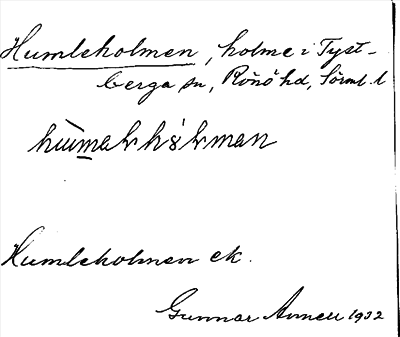 Humleholmen, holme i Tyst-
berga sn, Rönö hd, Sörml. l
Humleholmen ek.
Gunnar Arnell 1932